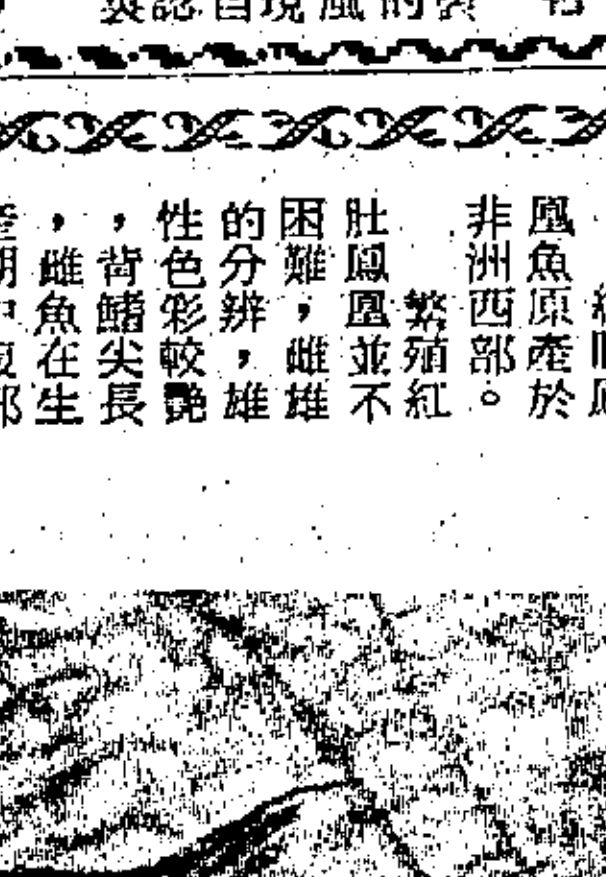 凰魚原產於
非洲西部。
繁殖紅
肚鳳凰並不
困難，雌雄
的分辨，雄
性色彩較艷
，背鰭尖長
，雌魚在生